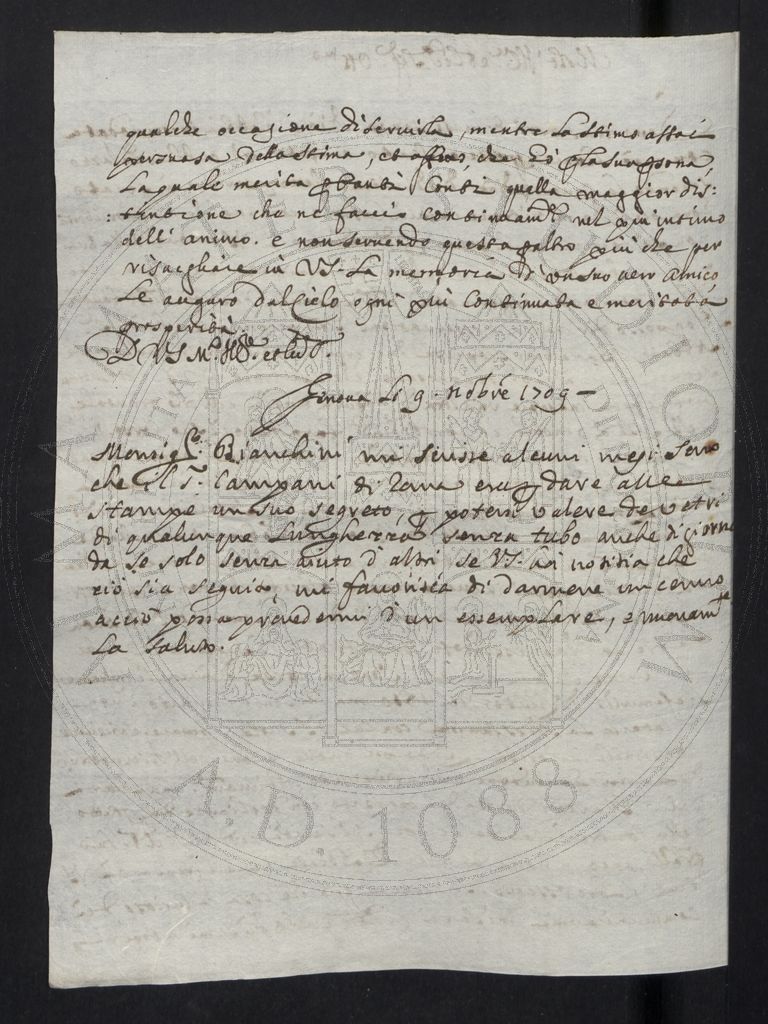 qualche occasione di servirla, mentre la stimo assai
persuasa della stima, et affetto, che hò p la sua psona,
la quale merita p tanti conti quella maggior dis:
:tintione che ne faccio continuamte nel più intimo
dell' animo. e non servendo questa p altro più che per
risvegliare in VS. la memoria di un suo vero Amico,
le auguro dal Cielo ogni più continuata e meritata
prosperità.
D VS M.
Genova li 9. nobre 1709 –
Monsigre. Bianchini mi scrisse alcuni mesi sono
che il Sr. Campani di Roma era p dare alle
stampe un suo segreto, p potersi valere de vetri
di qualunque lunghezza senza tubo anche di giorno
da se solo senza aiuto d' altri se VS. hà notitia che
ciò sia seguito, mi favorisca di darmene un cenno
acciò possa provedermi d' un essemplare, e nuovamte
la saluto.
A.D. 1088